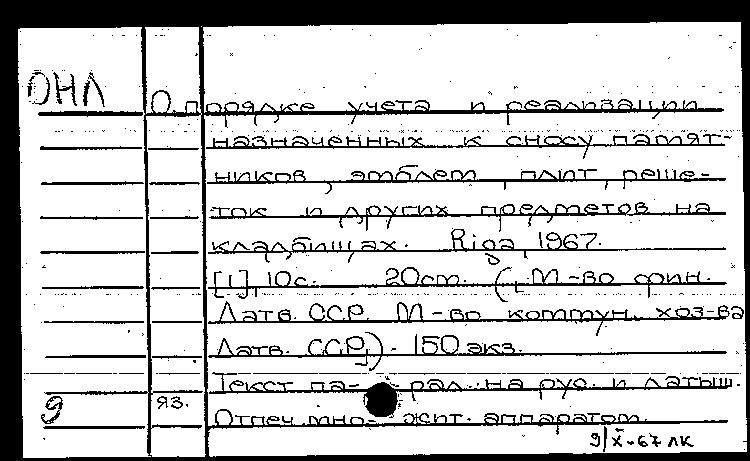 ОНЛ О порядке учета и реализации
назначенных к сносу памят-
ников, эмблем, плит, реше-
ток и других предметов на
кладбищах. Riga, 1967.
[1], 10с. 20cm. ([М-во фин.
Латв. ССР. М-во коммун. хоз-ва
Латв. ССР]). 150 экз.
Текст па- рал. на рус. и латыш.
9 яз. Отпеч. мно- жит. аппаратом.
9/X-67 ЛК